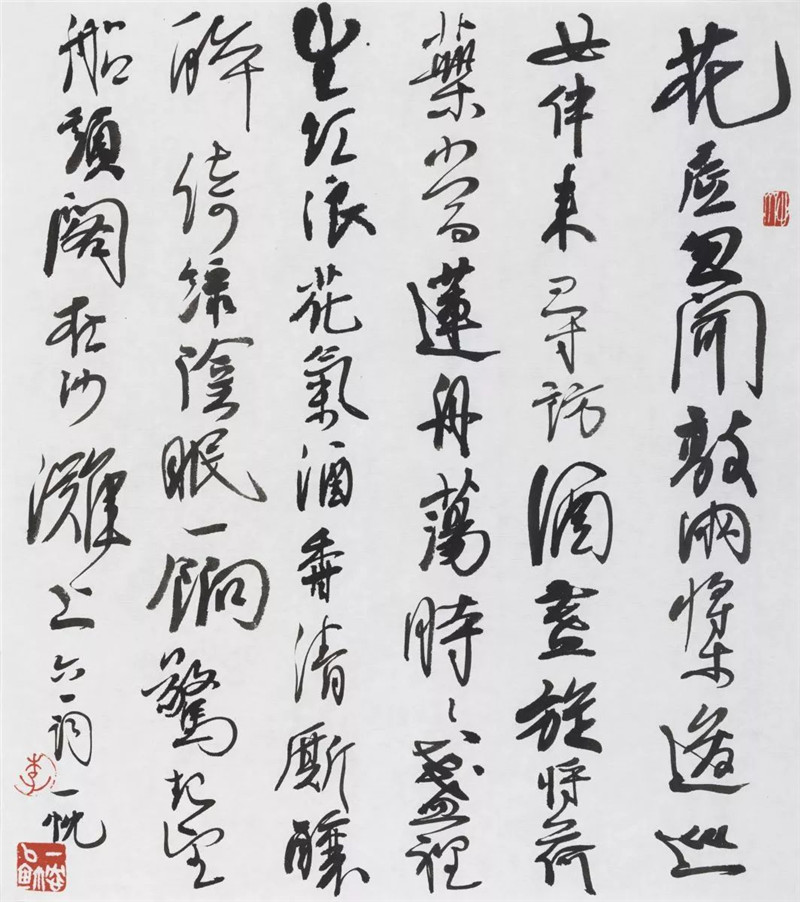 花底忽聞敲兩槳逡巡
女伴来尋訪酒盞旋將荷
葉當蓮舟蕩時〻盞裡
生紅浪花氣酒香清廝釀
醉倚綠陰眠一餉驚起望
船頭閣在沙灘上六一詞一忱
李